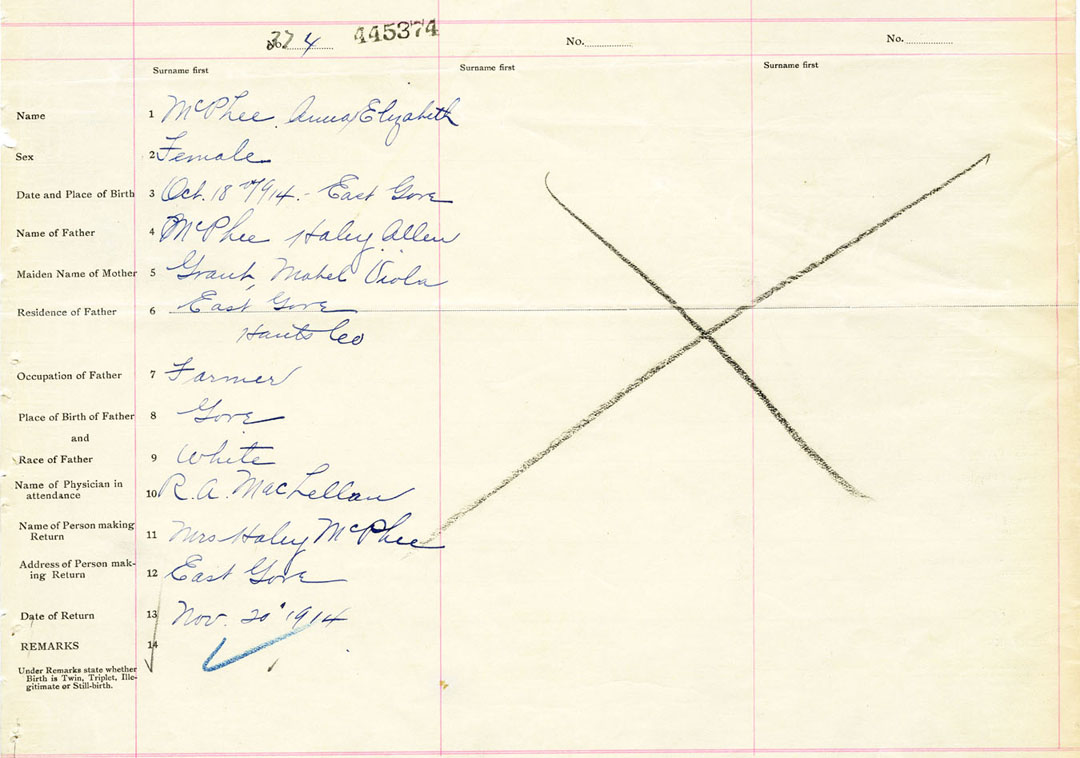 No. 4 445374
No.
No.
Surname first
Surname first
Surname first
Name 1 McPhee Anna Elizabeth
Sex 2 Female
Date and Place of Birth 3 Oct. 18th 1914. - East Gore
Name of Father 4 McPhee Haley Allen
Maiden Name of Mother 5 Grant, Mabel Viola
Residence of Father 6 East Gore
Hants Co
Occupation of Father 7 Farmer
Place of Birth of Father 8 Gore
and
Race of Father 9 White
Name of Physician in
attendance 10 R. A. MacLellan
Name of Person making
Return 11 Mrs Haley McPhee
Address of Person mak-
ing Return 12 East Gore
Date of Return 13 Nov. 20 1914
REMARKS 14
Under Remarks state whether
Birth is Twin, Triplet, Ille-
gitimate or Still-birth.